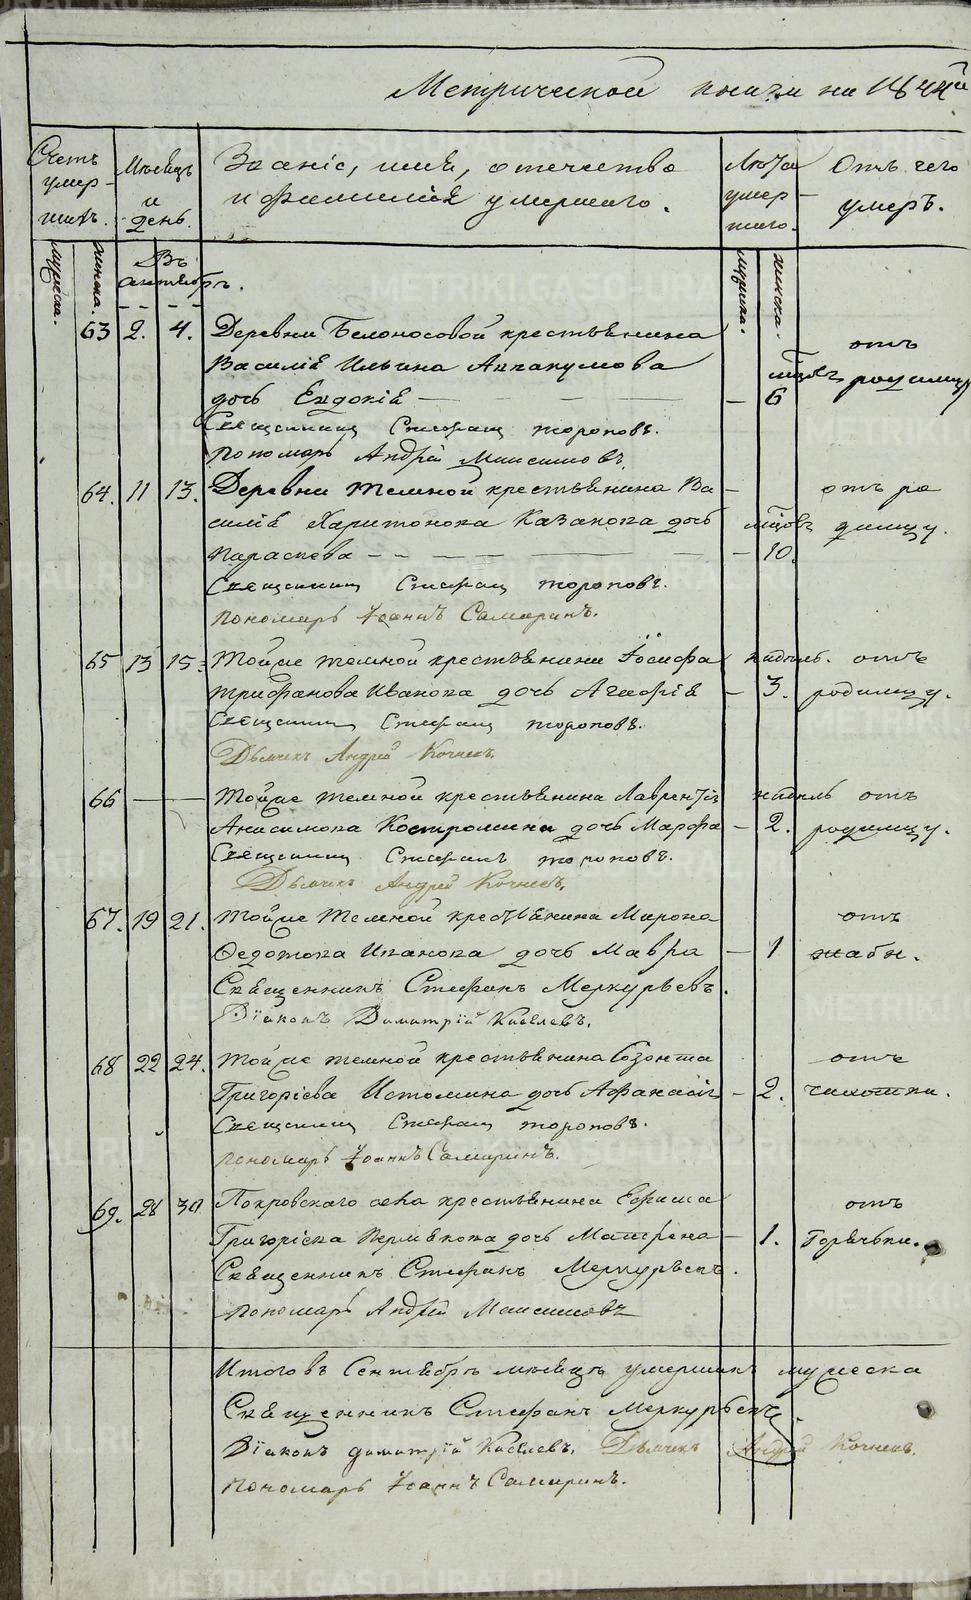 Метрической книги на 1844й
Счетъ умер- шихъ.
Мѣсяцъ и день.
Званіе, имя, отечество и фамилія умершаго.
Лѣта умер- шаго.
Отъ чего умеръ.
мужеска. женска.
Въ Сентябрѣ.
мужеска. женска.
63 2. 4. Деревни Белоносовой крестьянина отъ
Василія Ильина Аввакумова мѣсяцъ родимцу
дочь Евдокія — 6
Священникъ Стефанъ Тороповъ.
Пономарь Андрей Максимовъ.
64. 11 13. Деревни Темной крестьянина Ва- отъ ро
силія Харитонова Казакова дочь мѣсяцъ димцу.
Параскева — 10.
Священникъ Стефанъ Тороповъ.
Пономарь Іоаннъ Самаринъ.
65 13 15. Тойже Темной крестьянина Іосифа недѣль. отъ
Трифанова Иванова дочь Агафія — 3. родимцу.
Священникъ Стефанъ Тороповъ.
Дьячекъ Андрей Кочневъ.
66 — — Тойже Темной крестьянина Лаврентія недѣль отъ
Анисимова Костромина дочь Марфа — 2. родимцу.
Священникъ Стефанъ Тороповъ.
Дьячекъ Андрей Кочневъ.
67. 19 21. Тойже Темной крестьянина Мирона отъ
Федотова Иванова дочь Мавра — 1 жабы.
Священникъ Стефанъ Меркурьевъ.
Діаконъ Димитрій Киселевъ.
68 22 24. Тойже Темной крестьянина Созонта отъ
Григоріева Истомина дочь Афанасія — 2. чахотки.
Священникъ Стефанъ Тороповъ.
Пономарь Іоаннъ Самаринъ.
69. 28 30 Покровскаго села крестьянина Ефима отъ
Григоріева Пермякова дочь Матрена — 1. Горячьки.
Священникъ Стефанъ Меркурьевъ.
Пономарь Андрей Максимовъ
Итого въ Сентябрѣ мѣсяцѣ умершихъ мужеска
Священникъ Стефанъ Меркурьевъ.
Діаконъ Димитрій Киселевъ. Дьячекъ Андрей Кочневъ.
Пономарь Іоаннъ Самаринъ.
METRIKI.GASO-URAL.RU